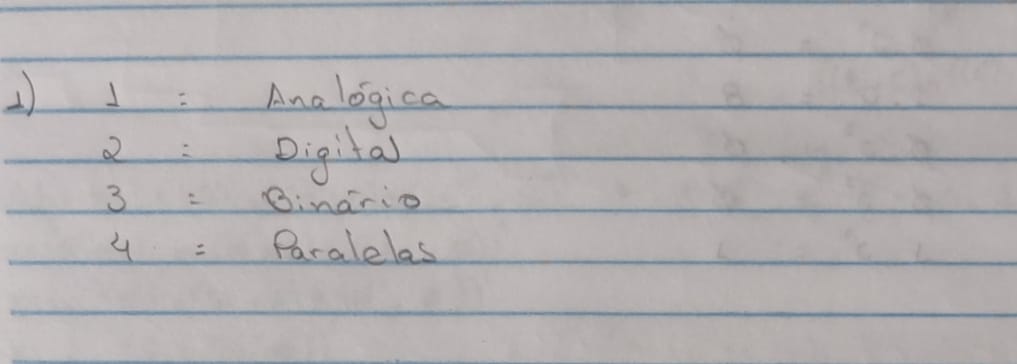 1) 1 = Analógica
2 = Digital
3 = Binário
4 = Paralelas